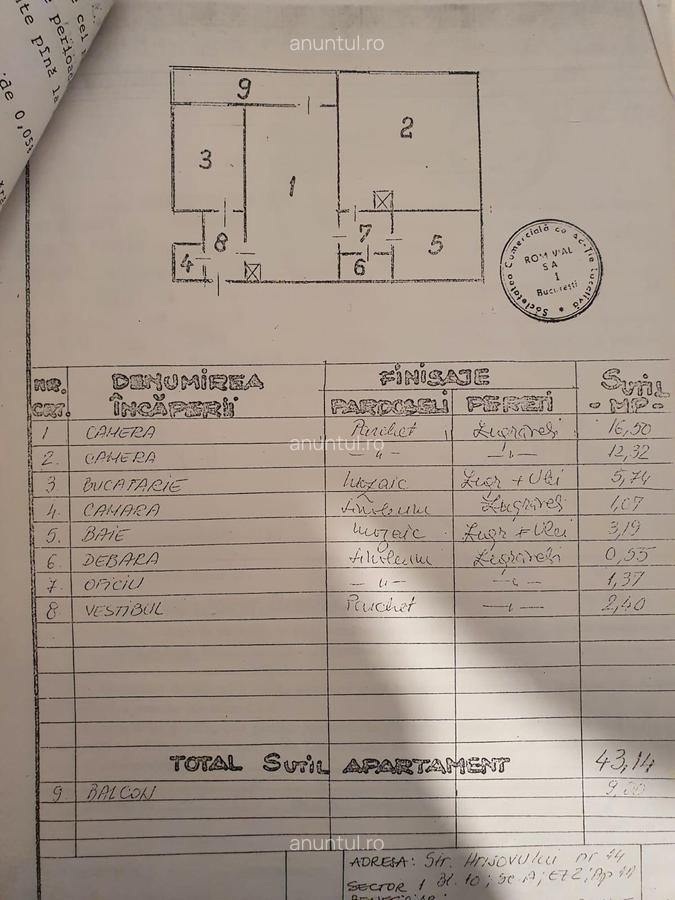 anuntul.ro
9
2
3
1
7
8
5
4
6
Societatea Comercială cu acţie Lucativă
ROM VIAL
S A
1
Bucureşti
NR. CRT. DENUMIREA ÎNCĂPERII FINISAJE PARDOSELI PEREŢI SUTIL - MP -
1 CAMERA Parchet Zugrăveli 16,50
2. CAMERA — " — — " — 12,32
3. BUCATARIE Mozaic Zugr + Ulei 5,74
4. CAMARA Linoleum Zugrăveli 1,07
5. BAIE Mozaic Zugr + Ulei 3,19
6 DEBARA Linoleum Zugrăveli 0,55
7. OFICIU — " — — " — 1,37
8 VESTIBUL Parchet — " — 2,40
anuntul.ro
TOTAL SUTIL APARTAMENT 43,14
9 BALCON
anuntul.ro
ADRESA: Str. Hrisovului nr
SECTOR 1 Bl. 10; Sc. A; ET 2; Ap